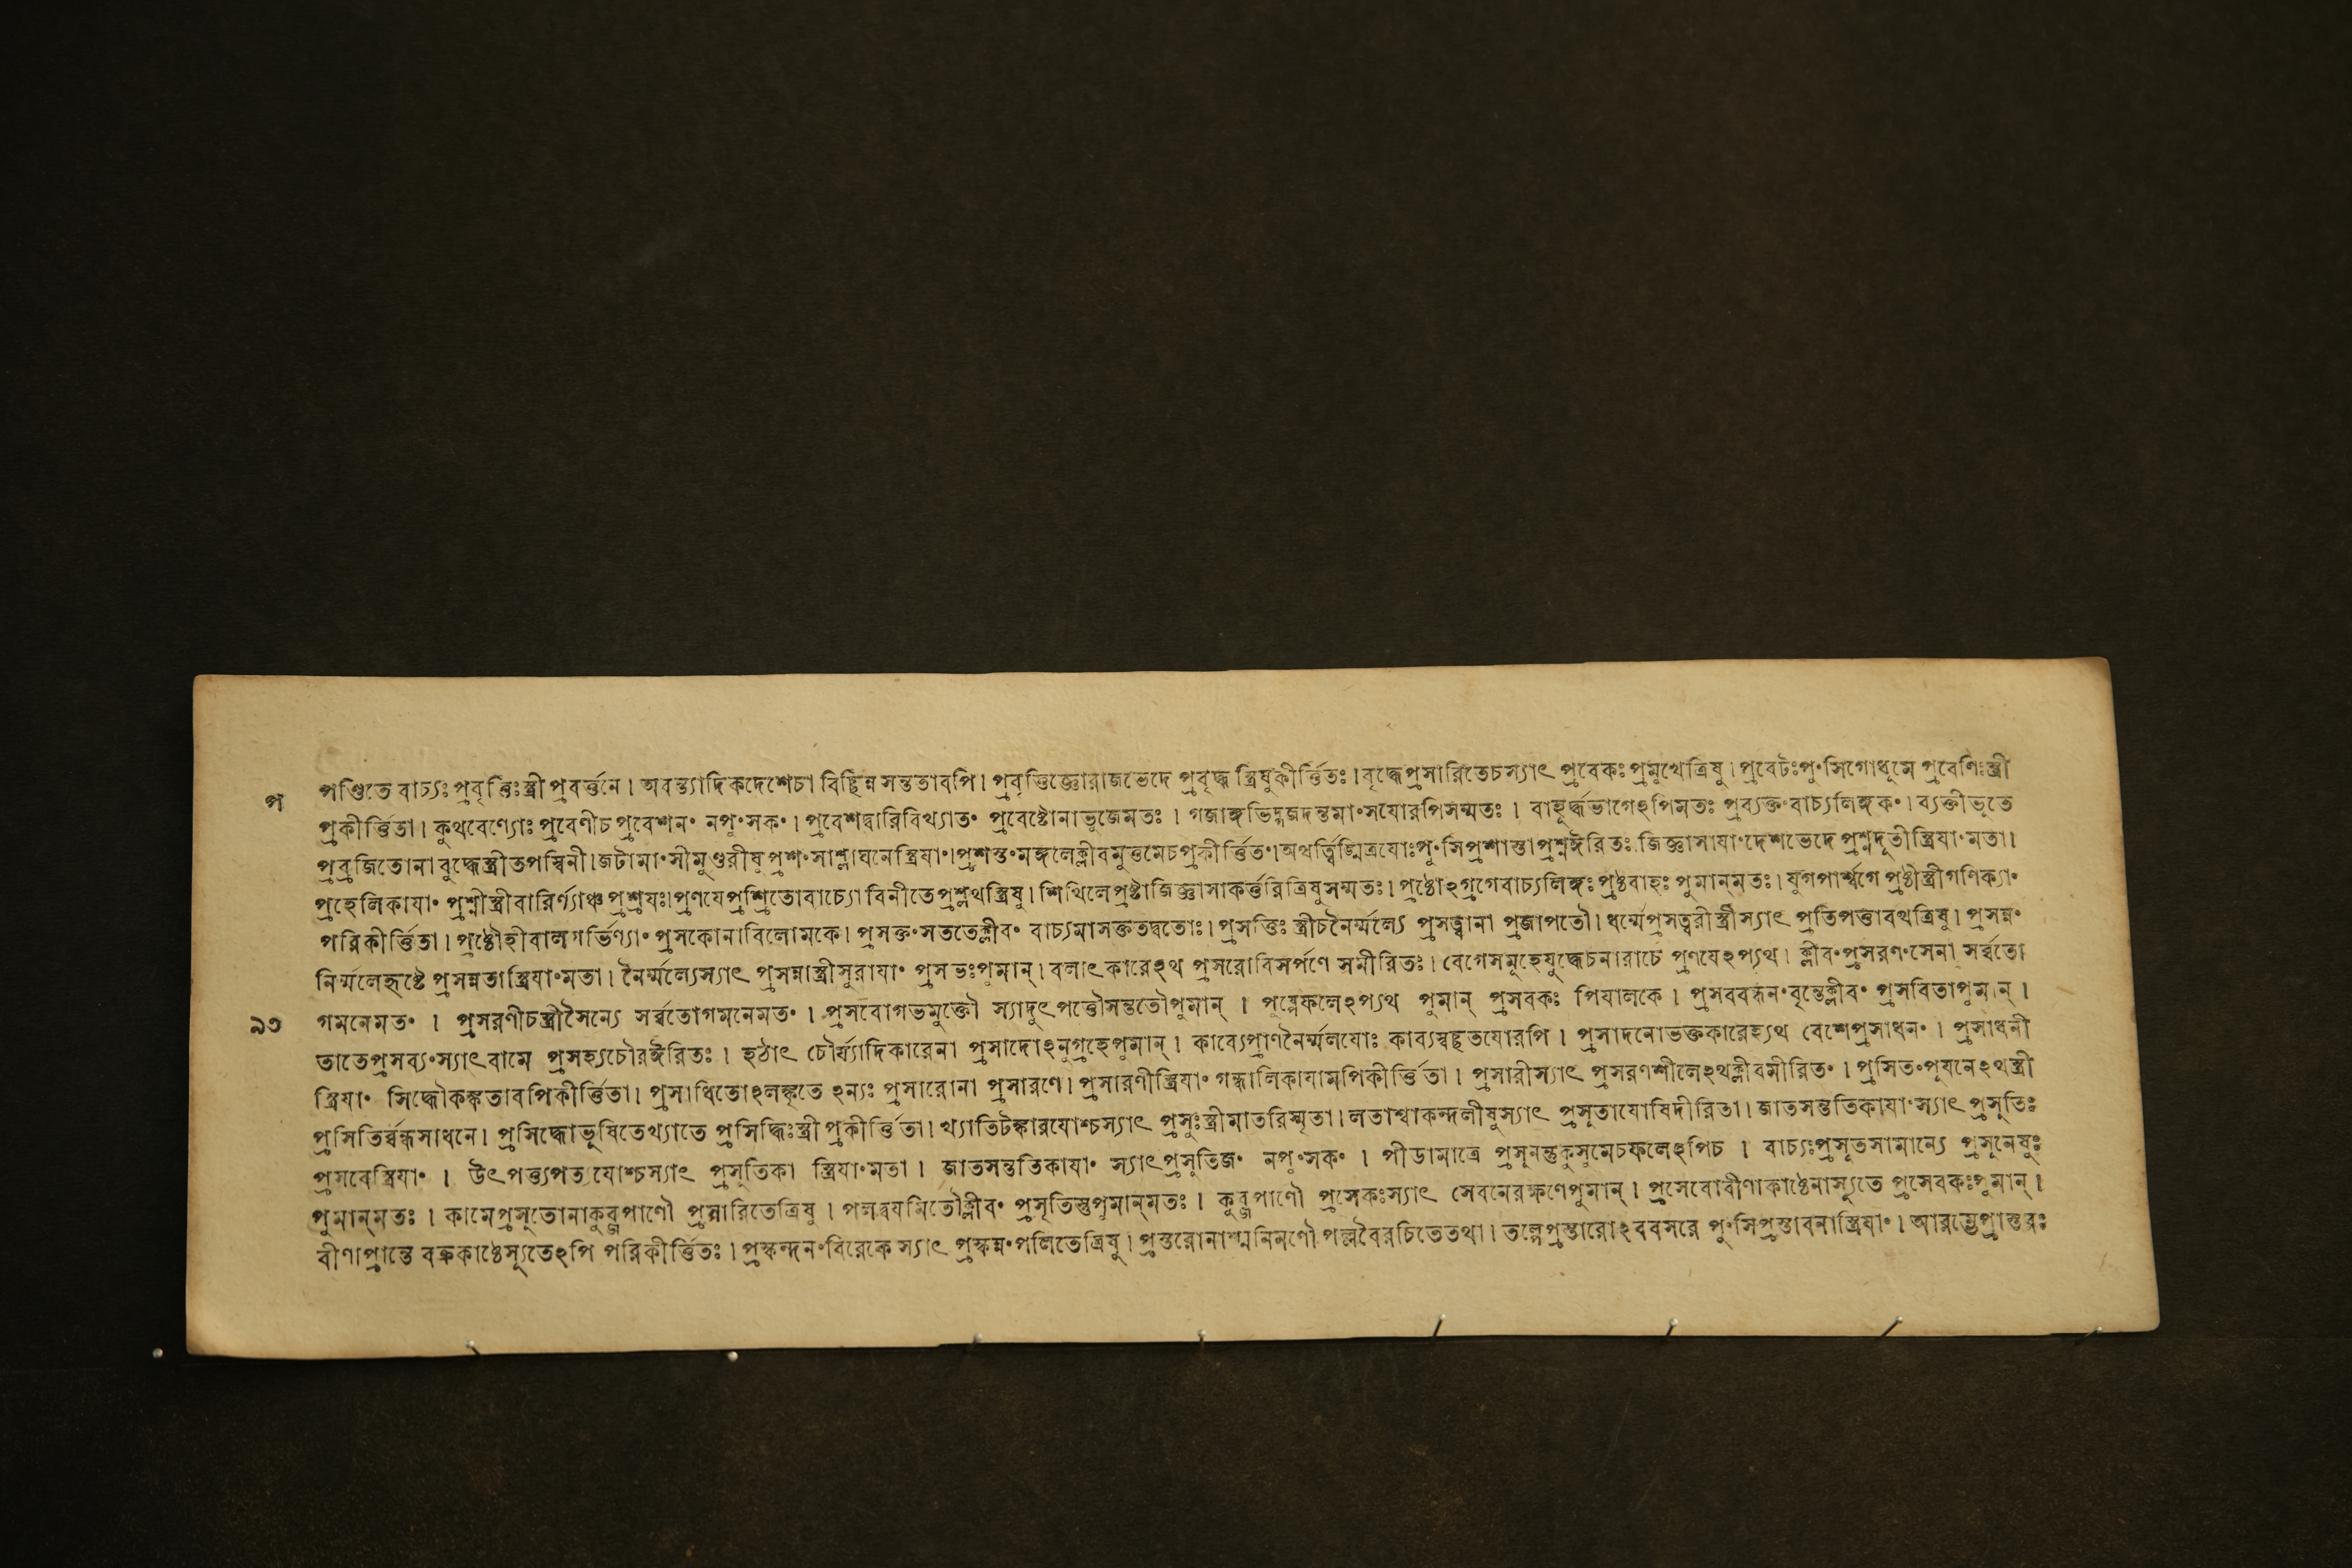 প
পণ্ডিতে বাচ্যঃপ্রবৃত্তিঃস্ত্রী প্রবর্ত্তনে । অবন্ত্যাদিকদেশেচা বিচ্ছিন্ন সন্ততাবপি । প্রবৃত্তিজ্ঞোরাজভেদে প্রবৃদ্ধ স্ত্রিষুকীর্ত্তিতঃ । বৃদ্ধেপ্রসারিতেচস্যাৎ প্রবেকঃপ্রমুখেত্রিষু । প্রবেটঃপু°সিগোধূমে প্রবেণিঃস্ত্রী
প্রকীর্ত্তিতা । কুথবেণ্যোঃ প্রবেণীচ প্রবেশন° নপু°সক° । প্রবেশদ্বারিবিখ্যাত° প্রবেষ্টোনাভুজেমতঃ । গজাঙ্গভিদ্গজদন্তমা°সযোরপিসম্মতঃ । বাহূর্দ্ধভাগেঽপিমতঃ প্রব্যক্ত°বাচ্যলিঙ্গক° । ব্যক্তীভূতে
প্রব্রজিতোনা বুদ্ধেস্ত্রীতপস্বিনী । জটামা°সীমুণ্ডরীষু প্রশ°সাশ্লাঘনেস্ত্রিযা° । প্রশস্ত°মঙ্গলেক্লীবমুত্তমেচপ্রকীর্ত্তিত° । অথর্ত্ত্বিঙ্মিত্রযোঃপু°সিপ্রশাস্তাপ্রশ্নঈরিতঃ জিজ্ঞাসাযা°দেশভেদে প্রশ্নদূতীস্ত্রিযা°মতা ।
প্রহেলিকাযা° প্রশ্নীস্ত্রীবারির্ণ্যাঞ্চ প্রশ্রযঃ । প্রণযেপ্রশ্রিতোবাচ্যো বিনীতেপ্রশ্লথস্ত্রিষু । শিথিলেপ্রষ্টাজিজ্ঞাসাকর্ত্তরিত্রিষুসম্মতঃ । প্রষ্ঠোঽগ্রগেবাচ্যলিঙ্গঃ প্রষ্ঠবাহঃ পুমান্মতঃ । যুগপার্শ্বগে প্রষ্ঠীস্ত্রীগণিক্যা°
পরিকীর্ত্তিতা । প্রষ্ঠৌহীবালগর্ভিণ্যা° প্রসকোনাবিলোমকে । প্রসক্ত°সততেক্লীব° বাচ্যমাসক্ততদ্বতোঃ । প্রসত্তিঃ স্ত্রীচনৈর্ম্মল্যে প্রসত্ত্বানা প্রজাপতৌ । ধর্ম্মেপ্রসত্ত্বরীস্ত্রীস্যাৎ প্রতিপত্তাবথত্রিষু । প্রসন্ন°
নির্ম্মলেহৃষ্টে প্রসন্নতাস্ত্রিযা°মতা । নৈর্ম্মল্যেস্যাৎ প্রসন্নাস্ত্রীসুরাযা° প্রসভঃপুমান্ । বলাৎকারেঽথ প্রসরোবিসর্পণে সমীরিতঃ । বেগেসমূহেযুদ্ধেচনারাচে প্রণযেঽপ্যথ । ক্লীব°প্রসরণ°সেনা সর্ব্বতো
৯৩
গমনেমত° । প্রসরণীচস্ত্রীসৈন্যে সর্ব্বতোগমনেমত° । প্রসবোগর্ভমুক্তৌ স্যাদুৎপত্তৌসন্ততৌপুমান্ । পুষ্পেফলেঽপ্যথ পুমান্ প্রসবকঃ পিযালকে । প্রসববন্ধন°বৃন্তেক্লীব° প্রসবিতাপুমান্ ।
তাতেপ্রসব্য°স্যাৎবামে প্রসহ্যচৌরঈরিতঃ । হঠাৎ চৌর্য্যাদিকারেনা প্রসাদোঽনুগ্রহেপুমান্ । কাব্যেপ্রাণনৈর্ম্মলযোঃ কাব্যস্বচ্ছতযোরপি । প্রসাদনোভক্তকারেহ্যথ বেশেপ্রসাধন° । প্রসাধনী
স্ত্রিযা° সিদ্ধৌকঙ্কতাবপিকীর্ত্তিতা । প্রসাধিতোঽলঙ্কৃতে ঽন্যঃ প্রসারোনা প্রসারণে । প্রসারণীস্ত্রিযা° গন্ধালিকাযামপিকীর্ত্তিতা । প্রসারীস্যাৎ প্রসরণশীলেঽথক্লীবমীরিত° । প্রসিত°পূযনেঽথস্ত্রী
প্রসিতির্ব্বন্ধসাধনে । প্রসিদ্ধোভূষিতেখ্যাতে প্রসিদ্ধিঃস্ত্রী প্রকীর্ত্তিতা । খ্যাতিটঙ্কারযোশ্চস্যাৎ প্রসূঃস্ত্রীমাতরিস্মৃতা । লতাশ্বাকন্দলীষুস্যাৎ প্রসূতাযোষিদীরিতা । জাতসন্ততিকাযা°স্যাৎ প্রসূতিঃ
প্রসবেস্ত্রিযা° । উৎপত্ত্যপত্যযোশ্চস্যাৎ প্রসূতিকা স্ত্রিযা°মতা । জাতসন্ততিকাযা° স্যাৎপ্রসূতিজ° নপু°সক° । পীডামাত্রে প্রসূনন্তুকুসুমেচফলেঽপিচ । বাচ্যঃপ্রসূতসামান্যে প্রসূনেষুঃ
পুমান্মতঃ । কামেপ্রসৃতোনাকুব্জপাণৌ প্রসারিতেত্রিষু । পলদ্বযমিতৌক্লীব° প্রসৃতিস্তুপুমান্মতঃ । কুব্জপাণৌ প্রসেকঃস্যাৎ সেবনেরক্ষণেপুমান্ । প্রসেবোবীণাকাষ্ঠেনাস্যূতে প্রসেবকঃপুমান্ ।
বীণাপ্রান্তে বক্রকাষ্ঠেস্যূতেঽপি পরিকীর্ত্তিতঃ । প্রস্কন্দন°বিরেকে স্যাৎ প্রস্কন্ন°পলিতেত্রিষু । প্রস্তরোনাশ্মনিমণৌ পল্লবৈরচিতেতথা । তল্পেপ্রস্তারোঽববসরে পু°সিপ্রস্তাবনাস্ত্রিযা° । আরম্ভেপ্রাস্তরঃ